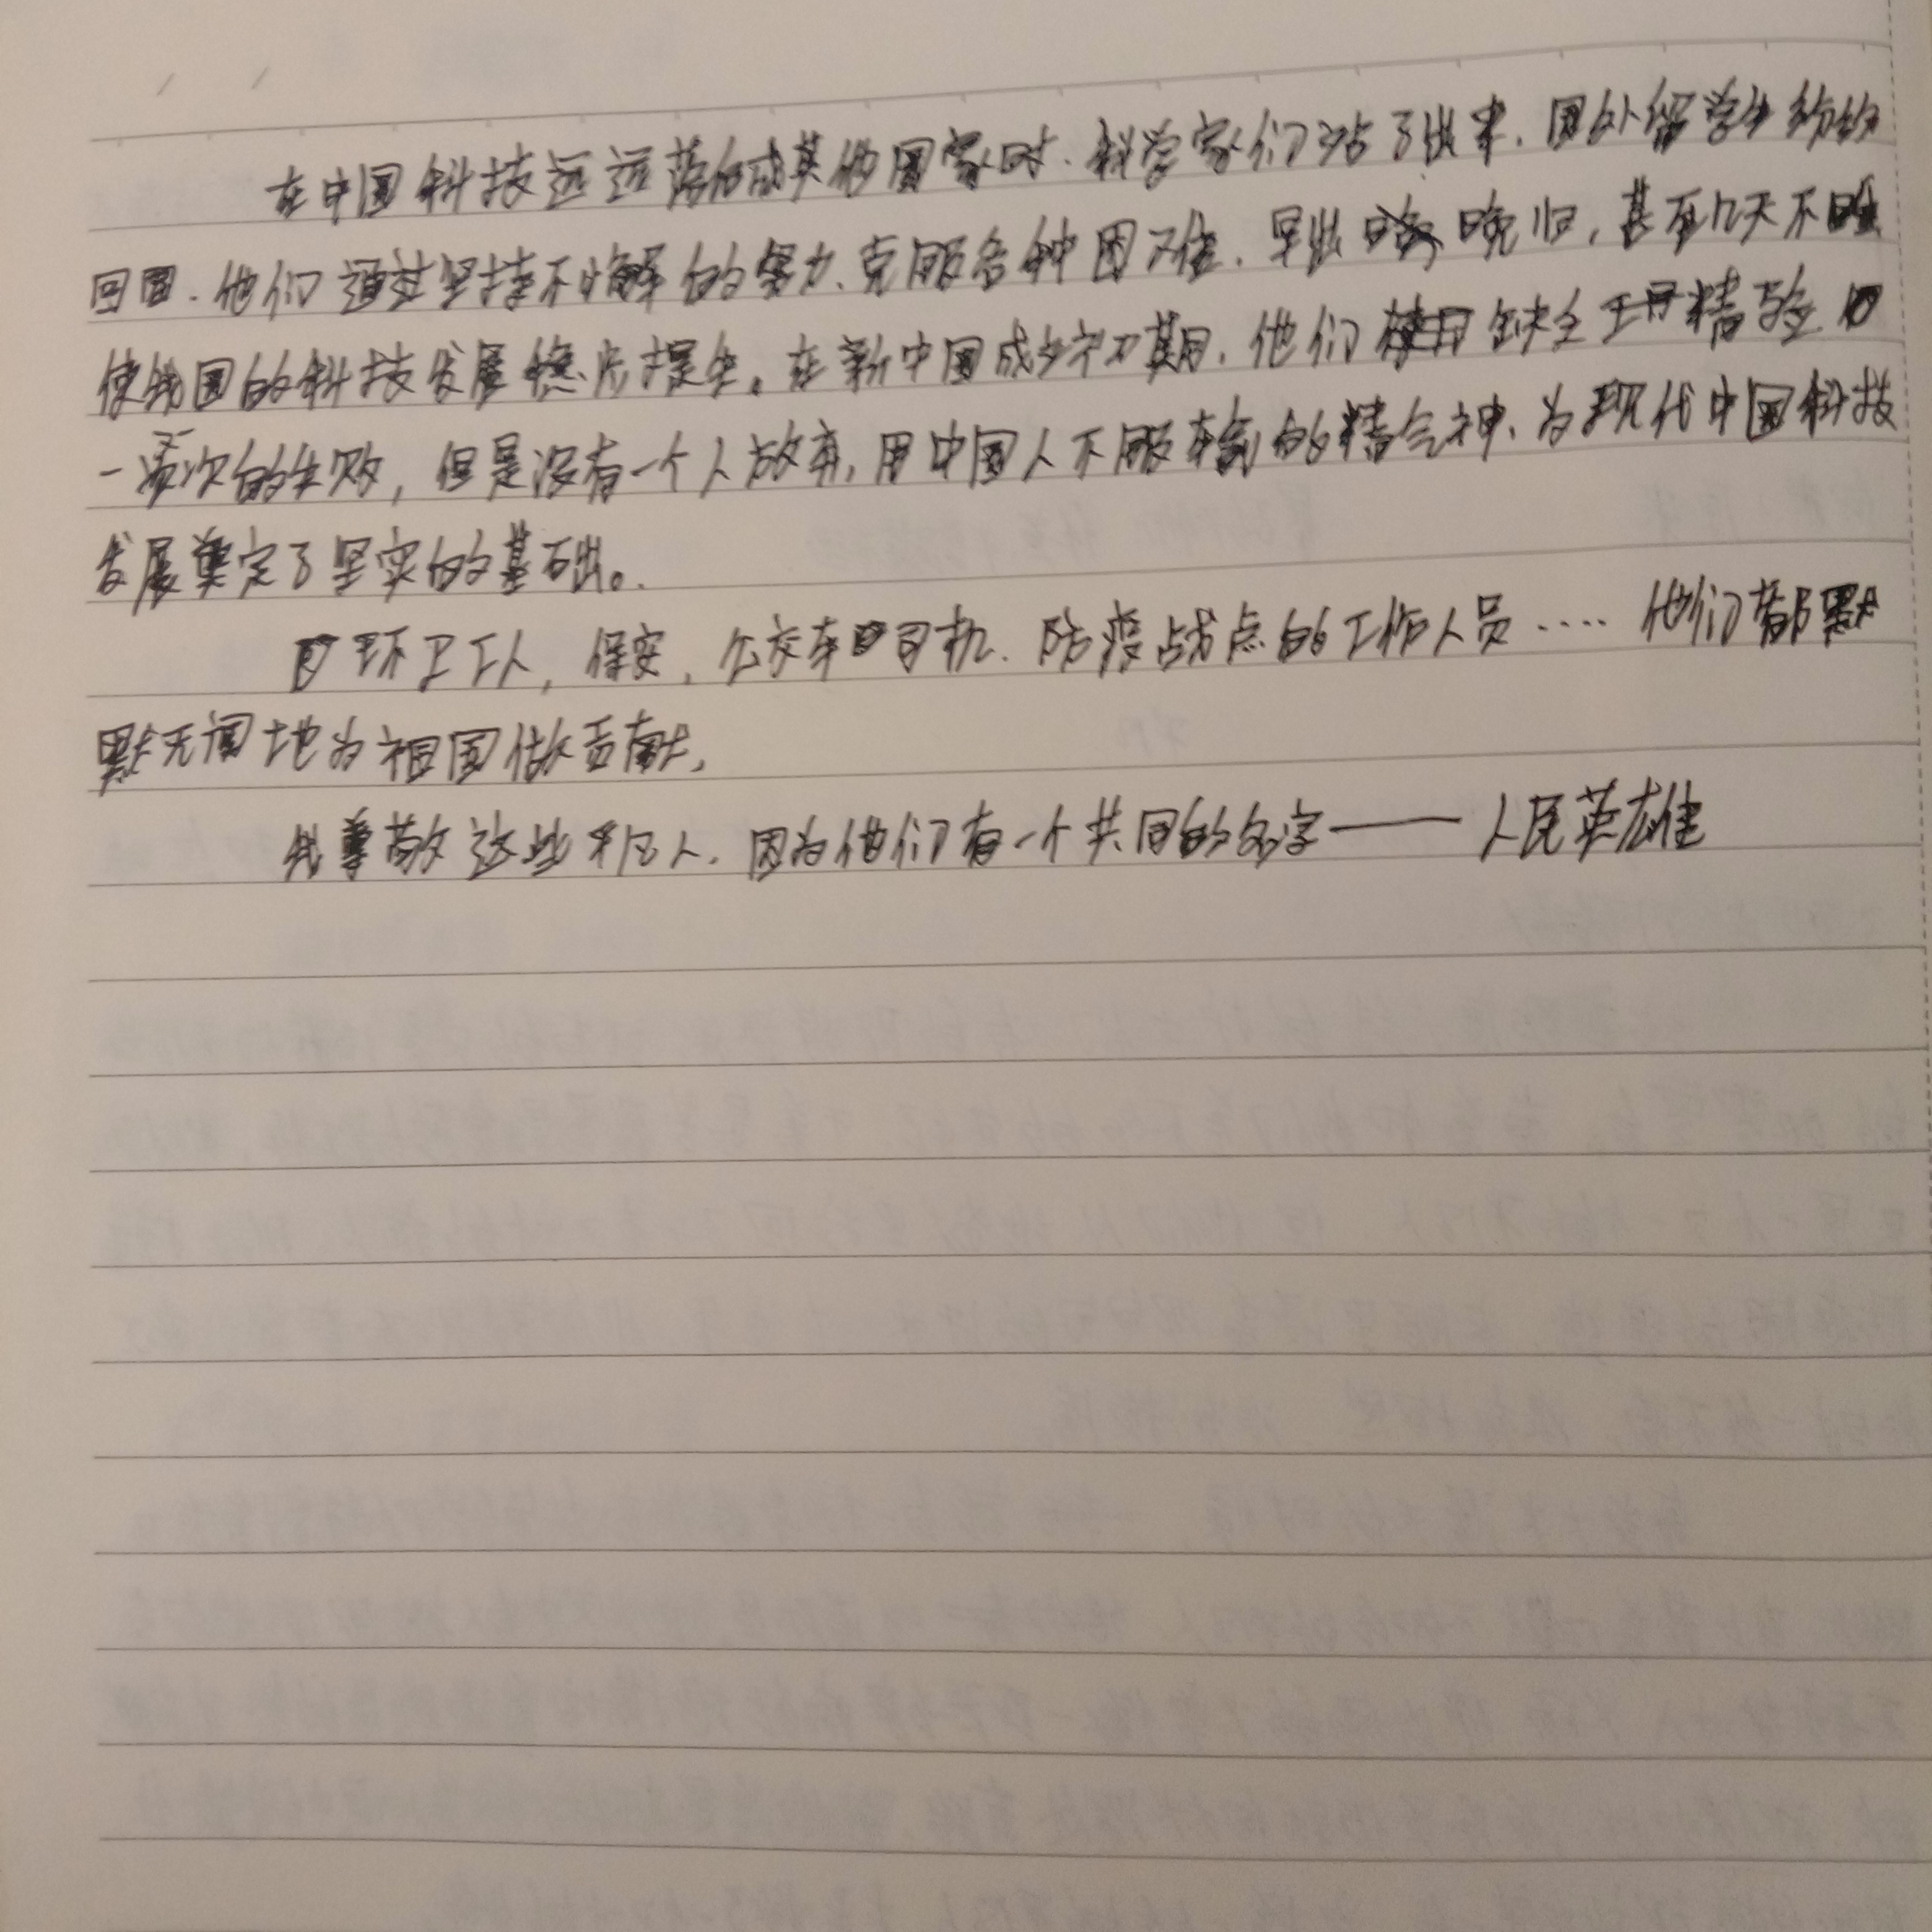 在中国科技远远落后其他国家时，科学家们站了出来，国外留学生纷纷
回国，他们通过坚持不懈的努力、克服各种困难，早出晚归，甚至几天不睡
使我国的科技发展稳步提生。在新中国成立初期，他们缺乏精验
一次次的失败，但是没有一个人放弃，用中国人不服输的精气神、为现代中国科技
发展奠定了坚实的基础。
环卫工人，保安，公交车司机、防疫战点的工作人员…… 他们都默
默无闻地为祖国做贡献，
我尊敬这些平凡人，因为他们有一个共同的名字——人民英雄